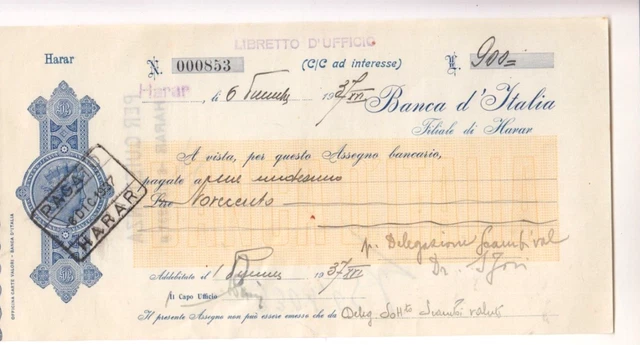 LIBRETTO D'UFFICIO
Harar
N. 000853
(C/C ad interesse)
L. 900=
Harar, li 6 1937 XVI
Banca d'Italia
Filiale di Harar
A vista, per questo Assegno bancario,
pagate a me medesimo
Lire Novecento
PAGATO
6 DIC. 1937
HARAR
p. Delegazione Scambi Val
Dr.
Addebitato il 1937 XVI
Il Capo Ufficio
Il presente Assegno non può essere emesso che da Deleg Scambi valute
OFFICINA CARTE VALORI - BANCA D'ITALIA